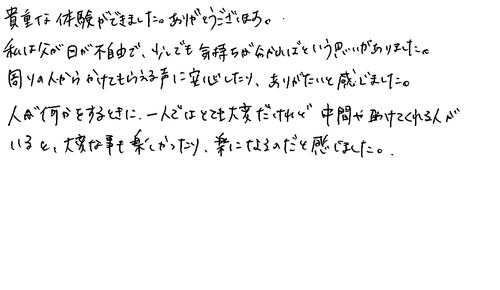 貴重な体験ができました。ありがとうございます。
私は父が目が不自由で、少しでも気持ちが分かればという思いがありました。
周りの人からかけてもらえる声に安心したり、ありがたいと感じました。
人が何かをするときに、一人ではとても大変だけれど仲間や助けてくれる人が
いると、大変な事も楽しかったり、楽になるのだと感じました。